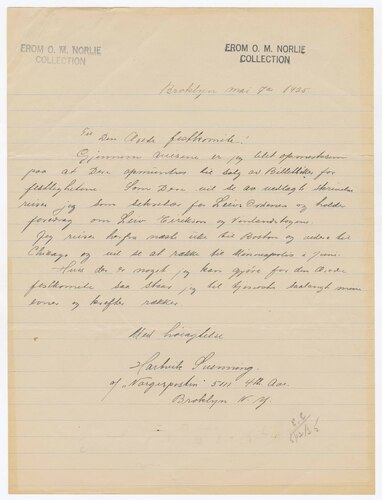 FROM O. M. NORLIE
COLLECTION
FROM O. M. NORLIE
COLLECTION
Broklyn mai 7de 1925
Til Den Ærede festkomite!
Gjennem aviserne er jeg blet opmerksom
paa at Dere opmuntres til salg av Billetter for
festlighetene Som Den vil se av vedlagt skrivelse
reiser jeg som sekretær for Leiv og holder
foredrag om Leiv Eirikson og Vinlandstogene
Jeg reiser herfra næste uke til Boston og videre til
Chicago og vil se at række til Minneapolis i Juni.
Hvis der er noget jeg kan gjøre for den Ærede
festkomite saa staar jeg til tjeneste saalangt mine
evner og kræfter rækker
Med høiagtelse
Hartvik
of "Norgesposten" 5111 4th Ave.
Broklyn N. Y.